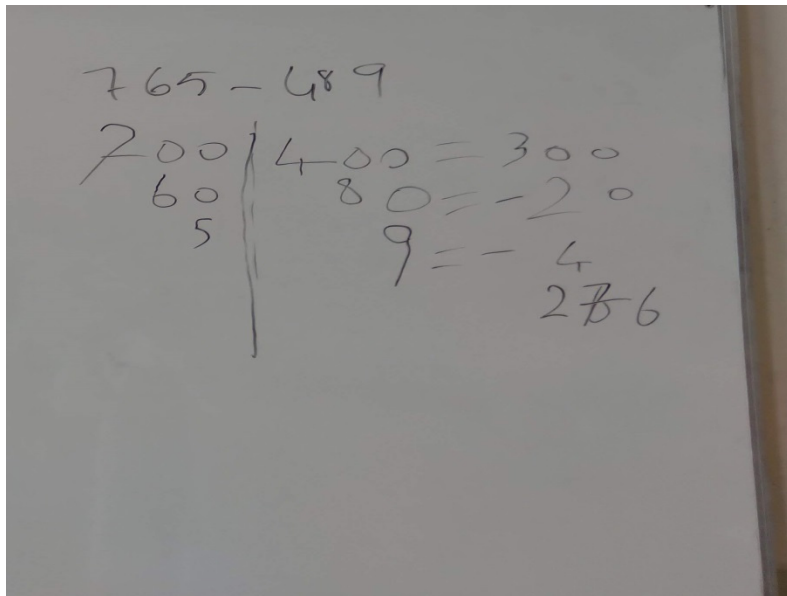 765 - 489
700 | 400 = 300
60 | 80 = - 20
5 | 9 = - 4
276